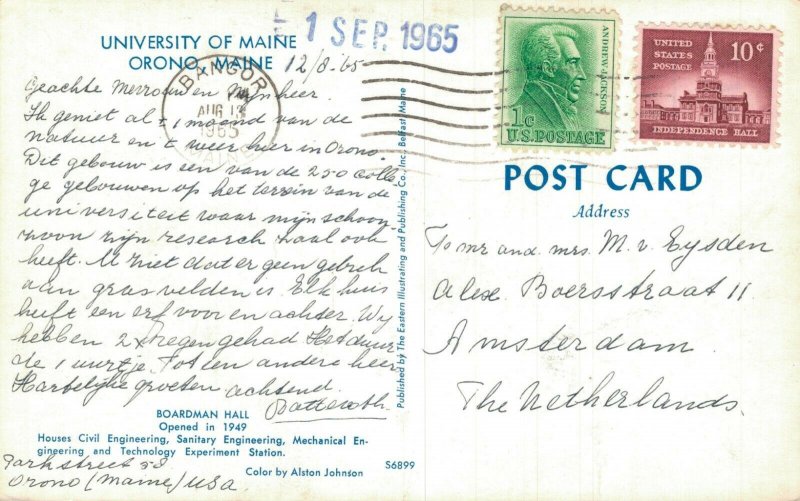 UNIVERSITY OF MAINE
ORONO, MAINE 12/8.65
1 SEP. 1965
BANGOR
AUG 13
1965
MAINE
ANDREW JACKSON
1¢
U.S. POSTAGE
UNITED STATES POSTAGE 10¢
INDEPENDENCE HALL
Geachte Mevrouw en Mijnheer.
Ik geniet al ± 1 maand van de
natuur en 't weer hier in Orono.
Dit gebouw is een van de 250 colle,
ge gebouwen op het terrein van de
universiteit waar mijn schoon
zoon zijn research zaal ook
heeft. U ziet dat er geen gebrek
aan grasvelden is. Elk huis
heeft een erf voor en achter. Wij
hebben 2x regen gehad. Het duur
de 1 uurtje. Tot een andere keer
Hartelijke groeten achtend.
BOARDMAN HALL
Opened in 1949
Houses Civil Engineering, Sanitary Engineering, Mechanical En-
gineering and Technology Experiment Station.
Color by Alston Johnson S6899
Park street 58
Orono (Maine) USA.
Published by The Eastern Illustrating and Publishing Co., Inc., Belfast, Maine
POST CARD
Address
To mr and. mrs. M. v. Eysden
Alex. Boersstraat 11
Amsterdam.
The Netherlands.